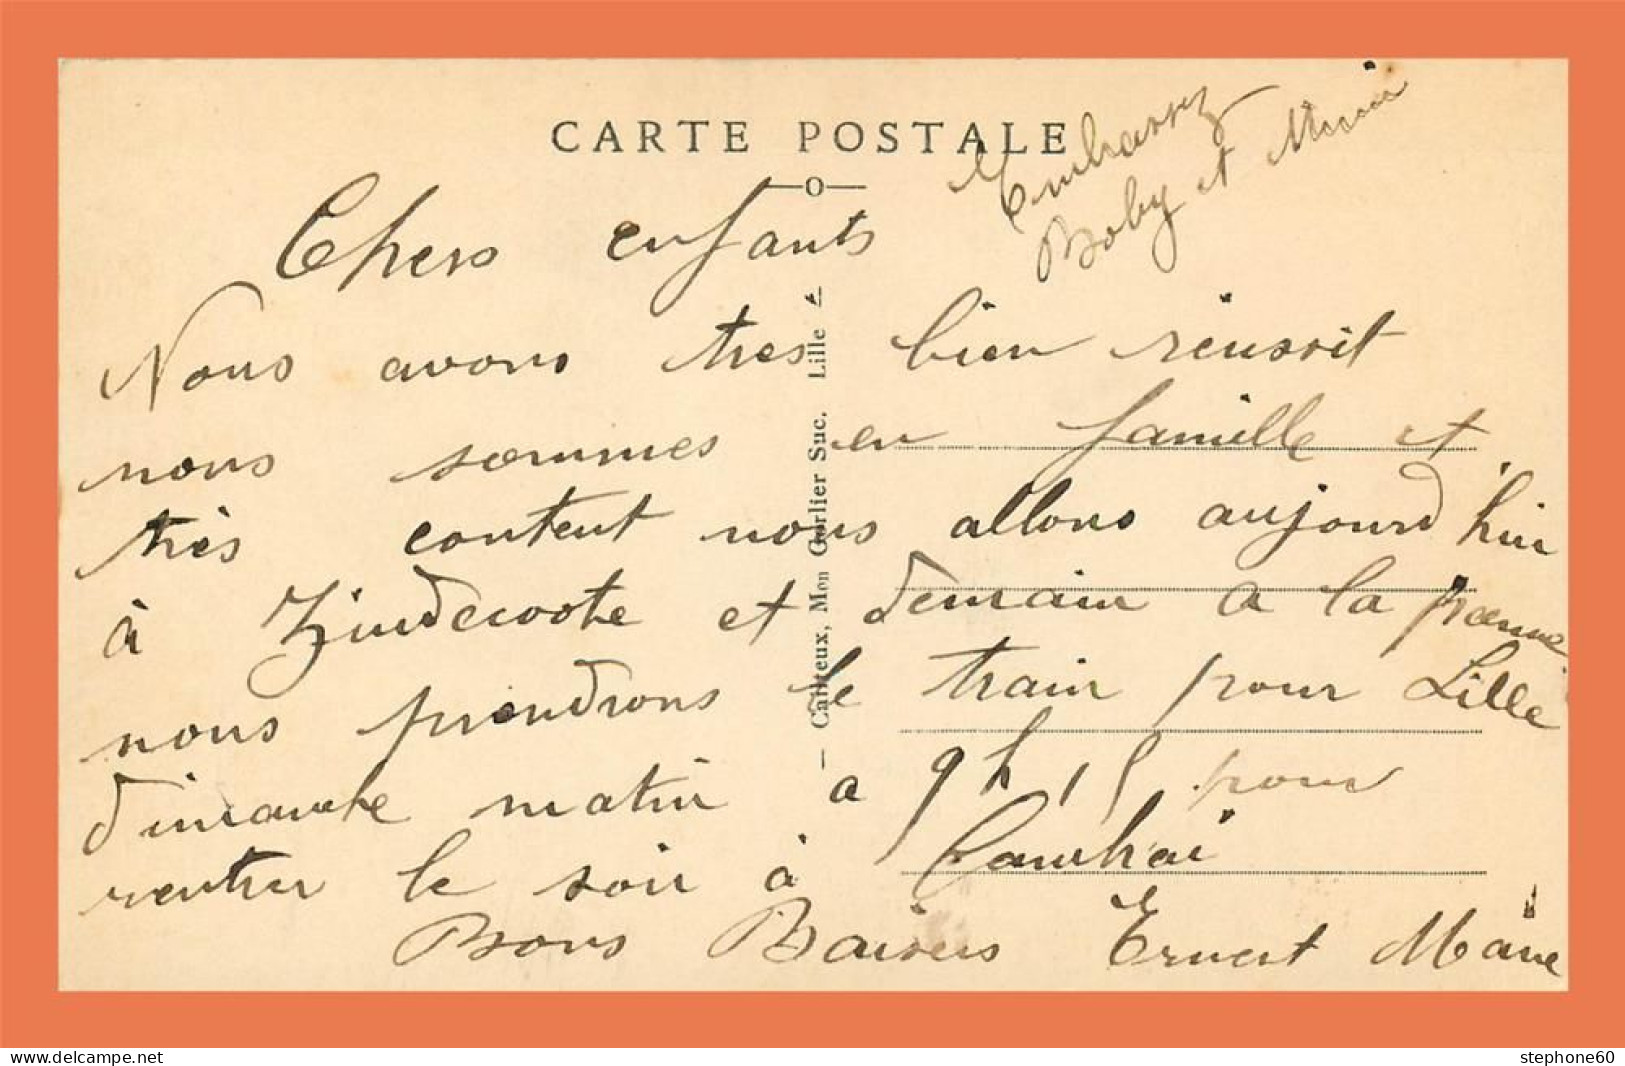 CARTE POSTALE
Embrassez
Boby et Mimi
Chers enfants
Nous avons tres bien réussit
nous sommes en famille et
très content nous allons aujourd hui
à Zindecoote et demain a la panne
nous prendrons le train pour Lille
dimanche matin a 9 h 15 pour
rentrer le soir à Cambrai
Bons Baisers Ernest Marie
— Cailteux, Mon Gorlier Suc. Lille
delcampe.net
stephone60